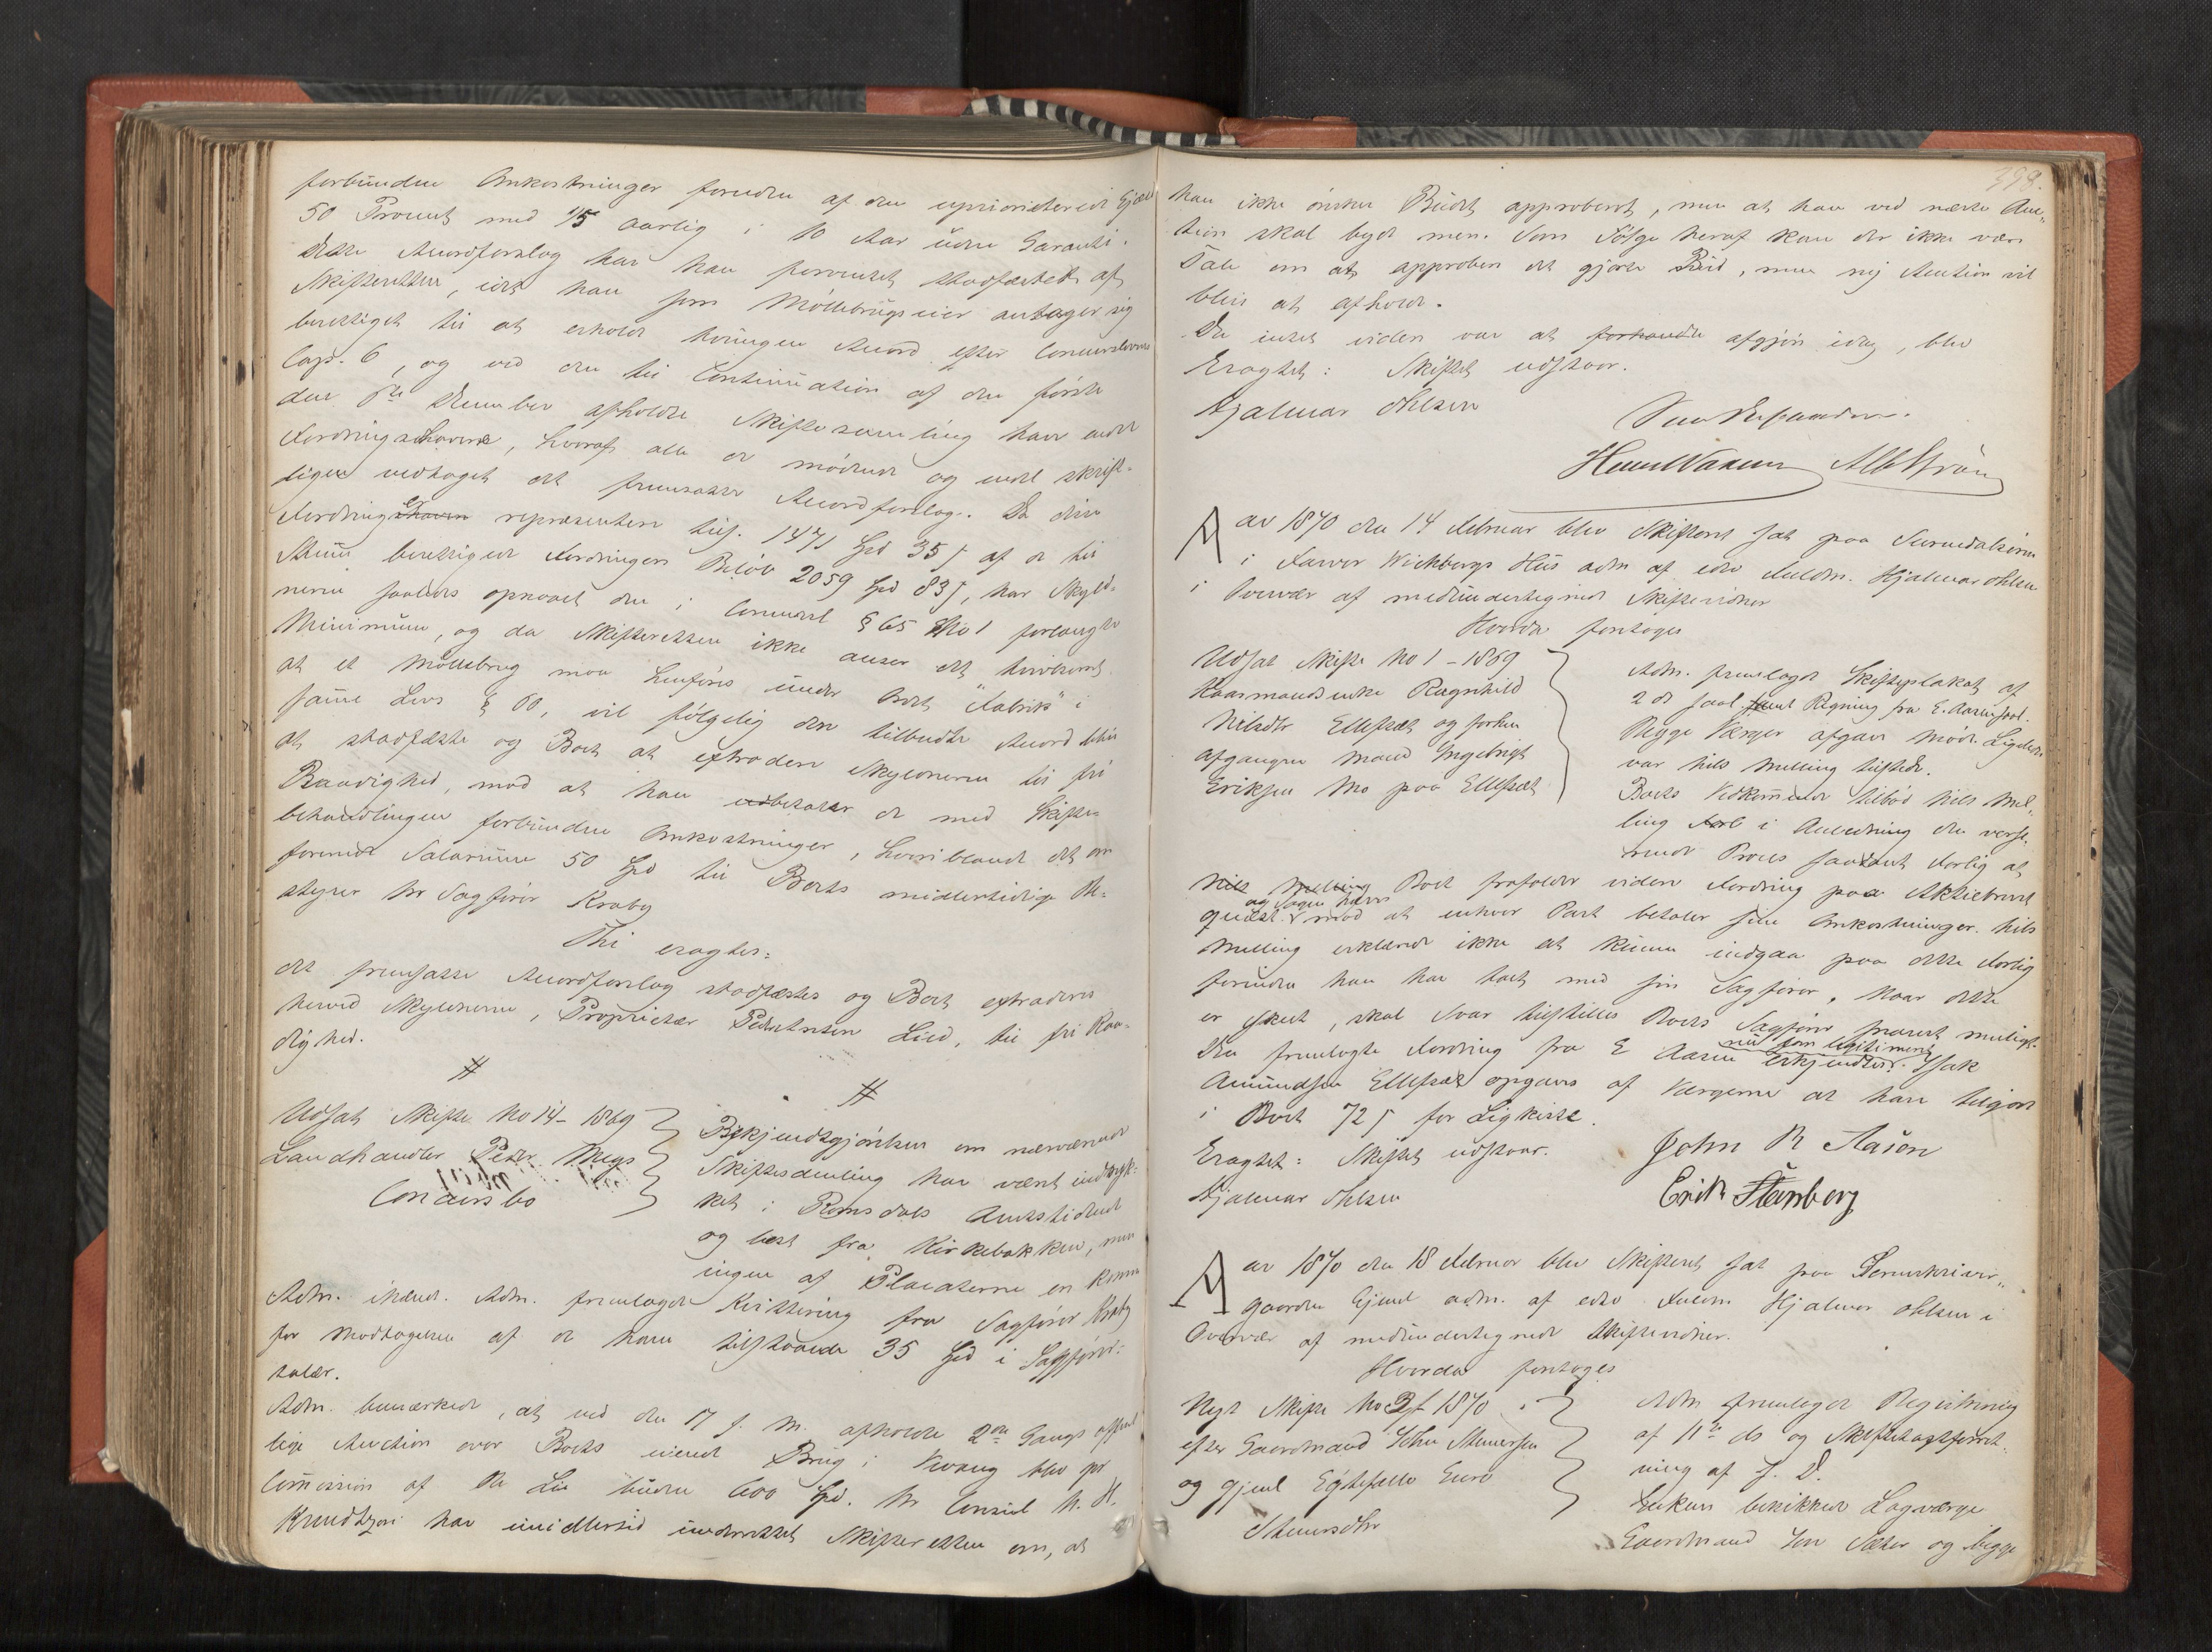 forbundne Omkostninger foruden af den uprioriterede Gjæld
50 Procent med 1/5 aarlig i 10 Aar uden Garanti.
Dette Accordforslag har han forventet stadfæstet af
Skifteretten, idet han som Møllebrugseier antager sig
berettiget til at erholde tvungen Accord efter Concurslovens
Cap. 6, og ved den til Continuation af den første
den 6te December afholdte Skiftesamling have endel
Fordringshavere, hvoraf alle de mødende og endel skrift-
ligen vedtaget det fremsatte Accordforslag. Da disse
Fordringshavere repræsentere tils. 1471 Spd 35 s af de til
Stemme berettigede Fordringers Beløb 2059 Spd 83 s, har Skyld-
neren saaledes opnaaet den i Concursl. § 65 No 1 forlangte
Minimum, og da Skifteretten ikke anser det tvivlsomt
at et Møllebrug maa henføres under Ordet "Fabrik" i
samme Lovs § 60, vil følgelig den tilbudte Accord blive
at stadfæste og Boet at extradere Skyldneren til fri
Raadighed, mod at han udbetaler de med Skifte-
behandlingen forbundne Omkostninger, hvoriblandt det om
formente Salarium 50 Spd til Boets midlertidige Be-
styrer Hr Sagfører Kraby
Thi eragtes:
det fremsatte Accordforslag stadfæstes og Boet extraderes
herved Skyldneren, Proprietær Lied, til fri Raa-
dighed.
Udsat Skifte No 14 - 1869
Landhandler Peder Megs
Concursbo
Bekjendtgjørelsen om nærværende
Skiftesamling har været indryk-
ket i Romsdals Amtstidende
og læst fra Kirkebakken, men
ingen af Placaterne er komne
Adm. ihænde. Adm. fremlagde Kvittering fra Sagfører Kraby
for Modtagelsen af de ham tilstaaede 35 Spd i Sagfører-
salær.
Adm. bemærkede, at ved den 17 f. M. afholdte 2den Gangs offent
lige Auction over Boets eiende Brug i Kvang blev pr
Commission af Lie buden 600 Spd. Hr Consul N. H.
Knudtzon har imidlertid underrettet Skifteretten om, at
398.
han ikke ønsker Budet approberet, men at han ved næste Auc-
tion skal byde mer. Som Følge heraf kan der ikke være
Tale om at approbere det gjorte Bud, men ny Auction vil
blive at afholde.
Da intet videre var at forhandle afgjøre idag, blev
Eragtet: Skiftet udstaar.
Hjalmar Ohlsen
Aar 1870 den 14 Februar blev Skifteret sat paa Surendalsøren
i Farver Wichbergs Hus adm af edsv Fuldm. Hjalmar Ohlsen
i Overvær af medundertegnede Skiftevidner
Hvorda foretoges
Udsat Skifte No 1 - 1869
Kaarmandsenke Ragnhild
Nilsdtr Ellefsæt og forhen
afgangne Mand Ingebrigt
Eriksen Mo paa Ellefsæt
Adm. fremlagde Skifteplakat af
2 ds saal. samt Regning fra E. Aasen saal.
Begge Værger afgav Møde. Ligeledes
var Nils Melling tilstede.
Boets Vedkommende tilbød Nils Mel-
ling Forl i Anledning den verse-
rende Proces saadant Forlig at
Nils Melling Boet frafalder videre Fordring paa Aktiebrevet
og Sagen hæves
quæst. mod at enhver Part betaler sine Omkostninger. Nils
Melling erklærede ikke at kunne indgaa paa dette Forlig
forinden han har talt med sin Sagfører. Naar dette
er skeet, skal Svar tilstilles Boets Sagfører snarest muligt.
nu som legitimeret
Den fremlagte Fordring fra E Aasen erkjendtes. Isak
Amundsen Ellefsæt opgaves af Værgerne at have tilgode
i Boet 72 s for Ligkiste.
Eragtet: Skiftet udstaar.
Hjalmar Ohlsen
John R Aasen
Erik Stenberg
Aar 1870 den 18 Februar blev Skifteret sat paa Sorenskriver-
gaarden Gjeml adm. af edsv Fuldm Hjalmar Ohlsen i
Overvær af medundertegnede Skiftevidner.
Hvorda foretoges
Nyt Skifte No 2 af 1870
efter Gaardmand John Steinersen
og gjenl Egtefælle Guro
Steinersdtr
Adm fremlagde Registrering
af 11te ds og Skiftetaxtforret-
ning af s. D.
Enkens beskikkede Lagværge
Gaardmand Jon Sæter og begge